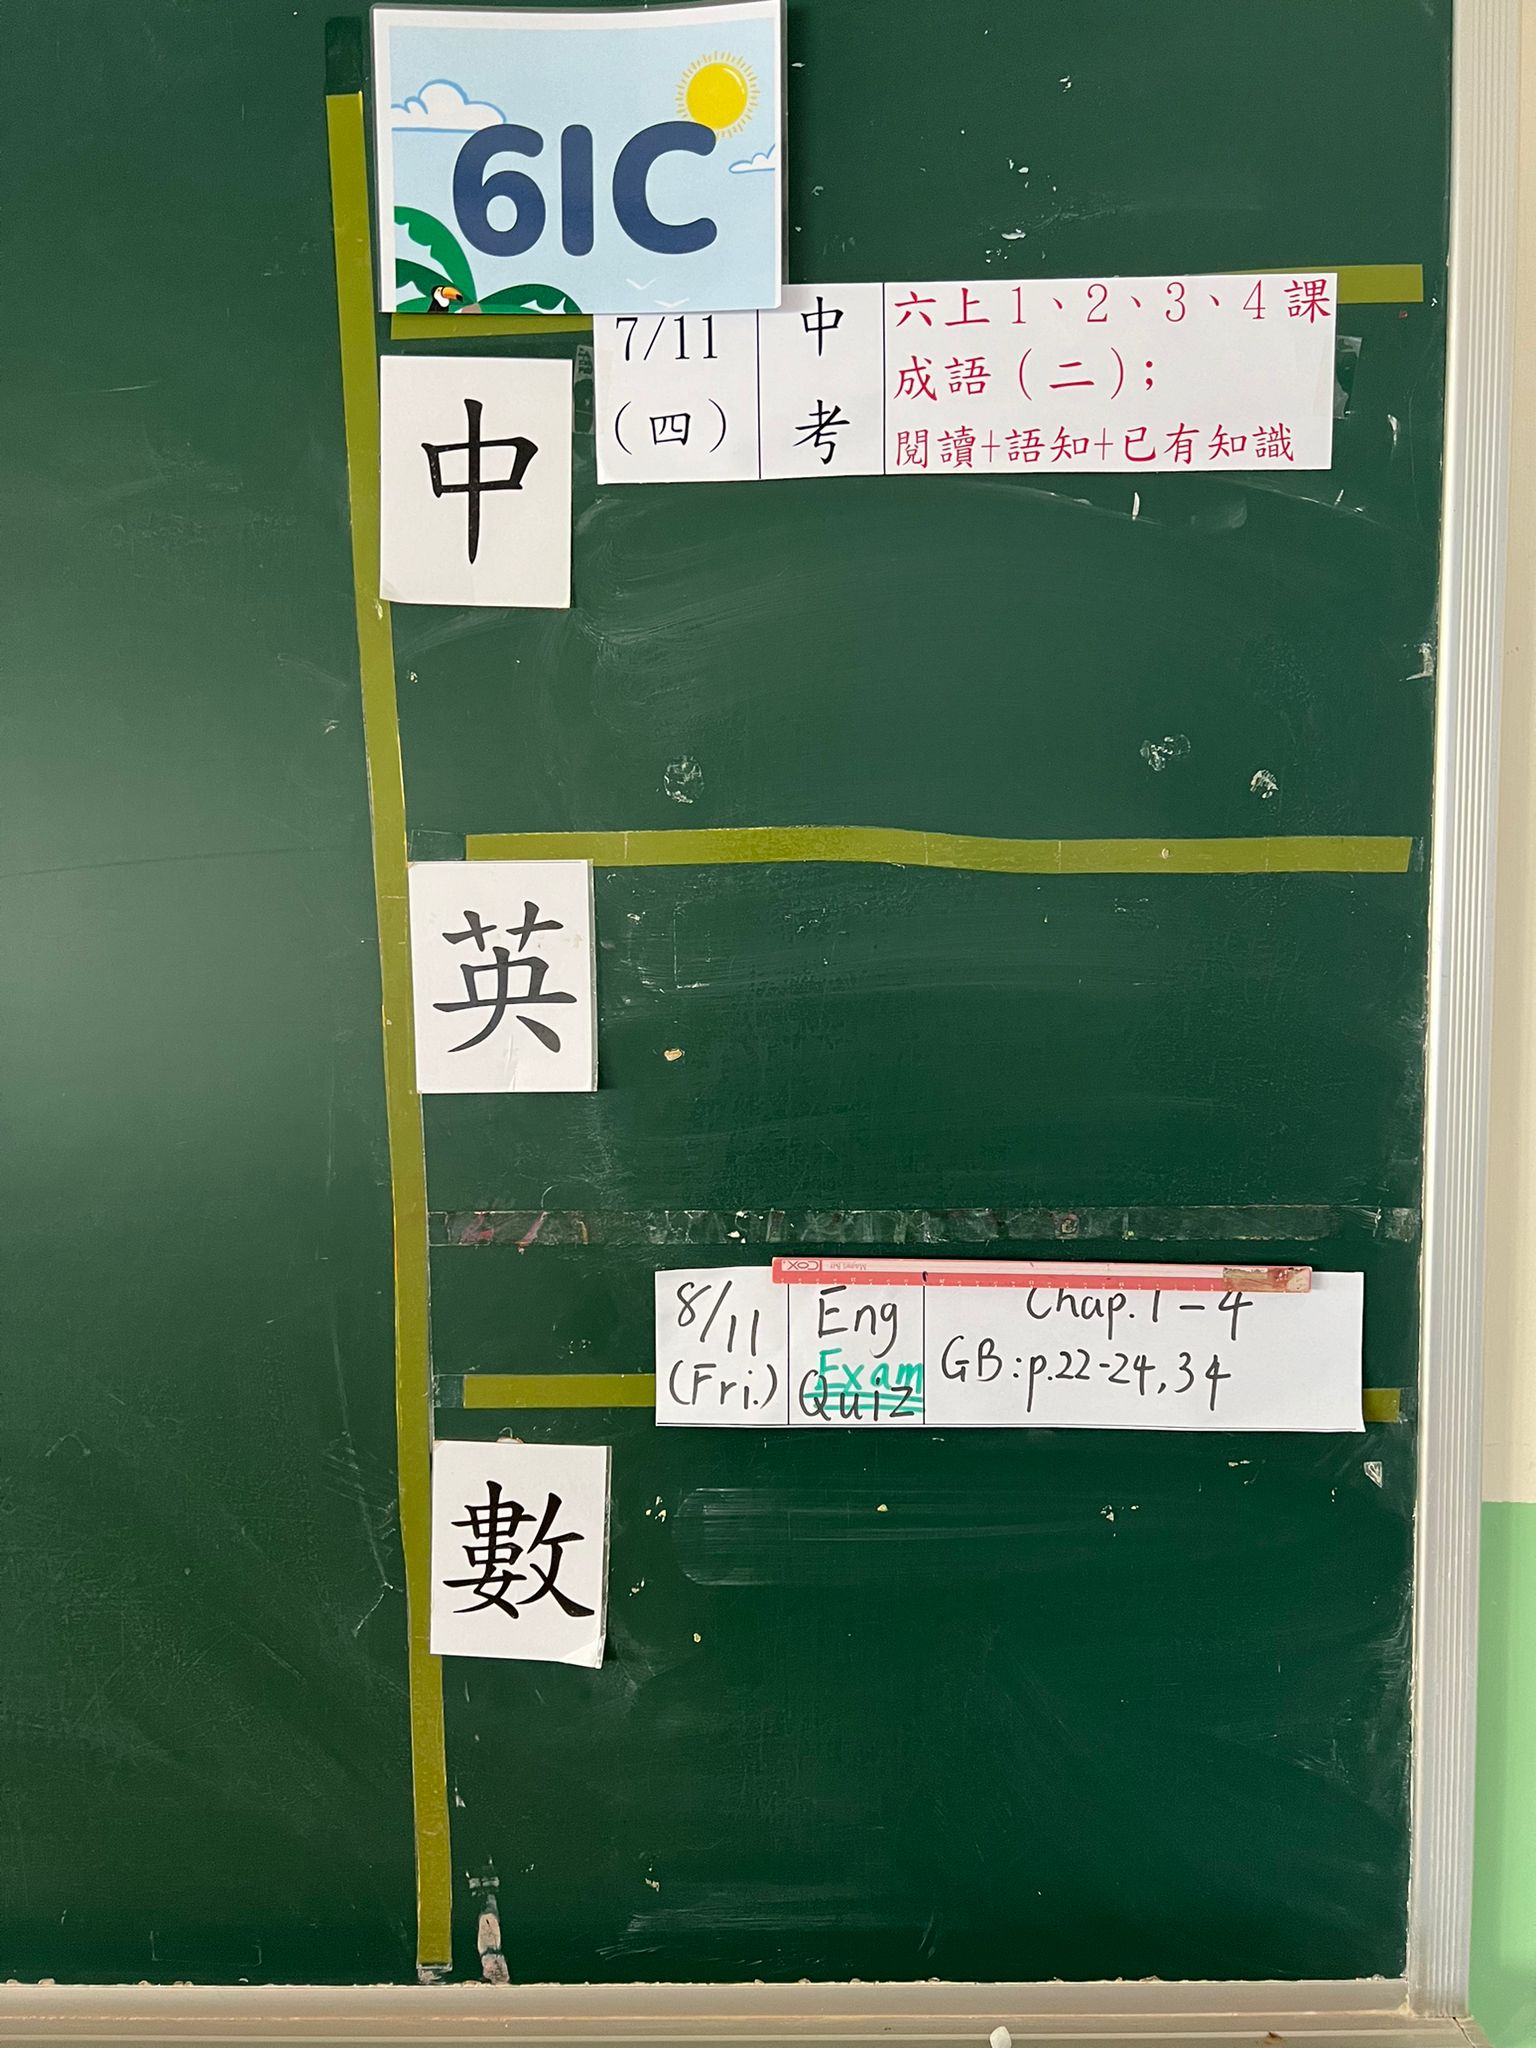 6IC
7/11
(四)
中
考
六上1、2、3、4課
成語(二);
閱讀+語知+已有知識
中
英
8/11
(Fri.)
Eng
Exam
Quiz
Chap. 1-4
GB: p.22-24, 34
COX
數